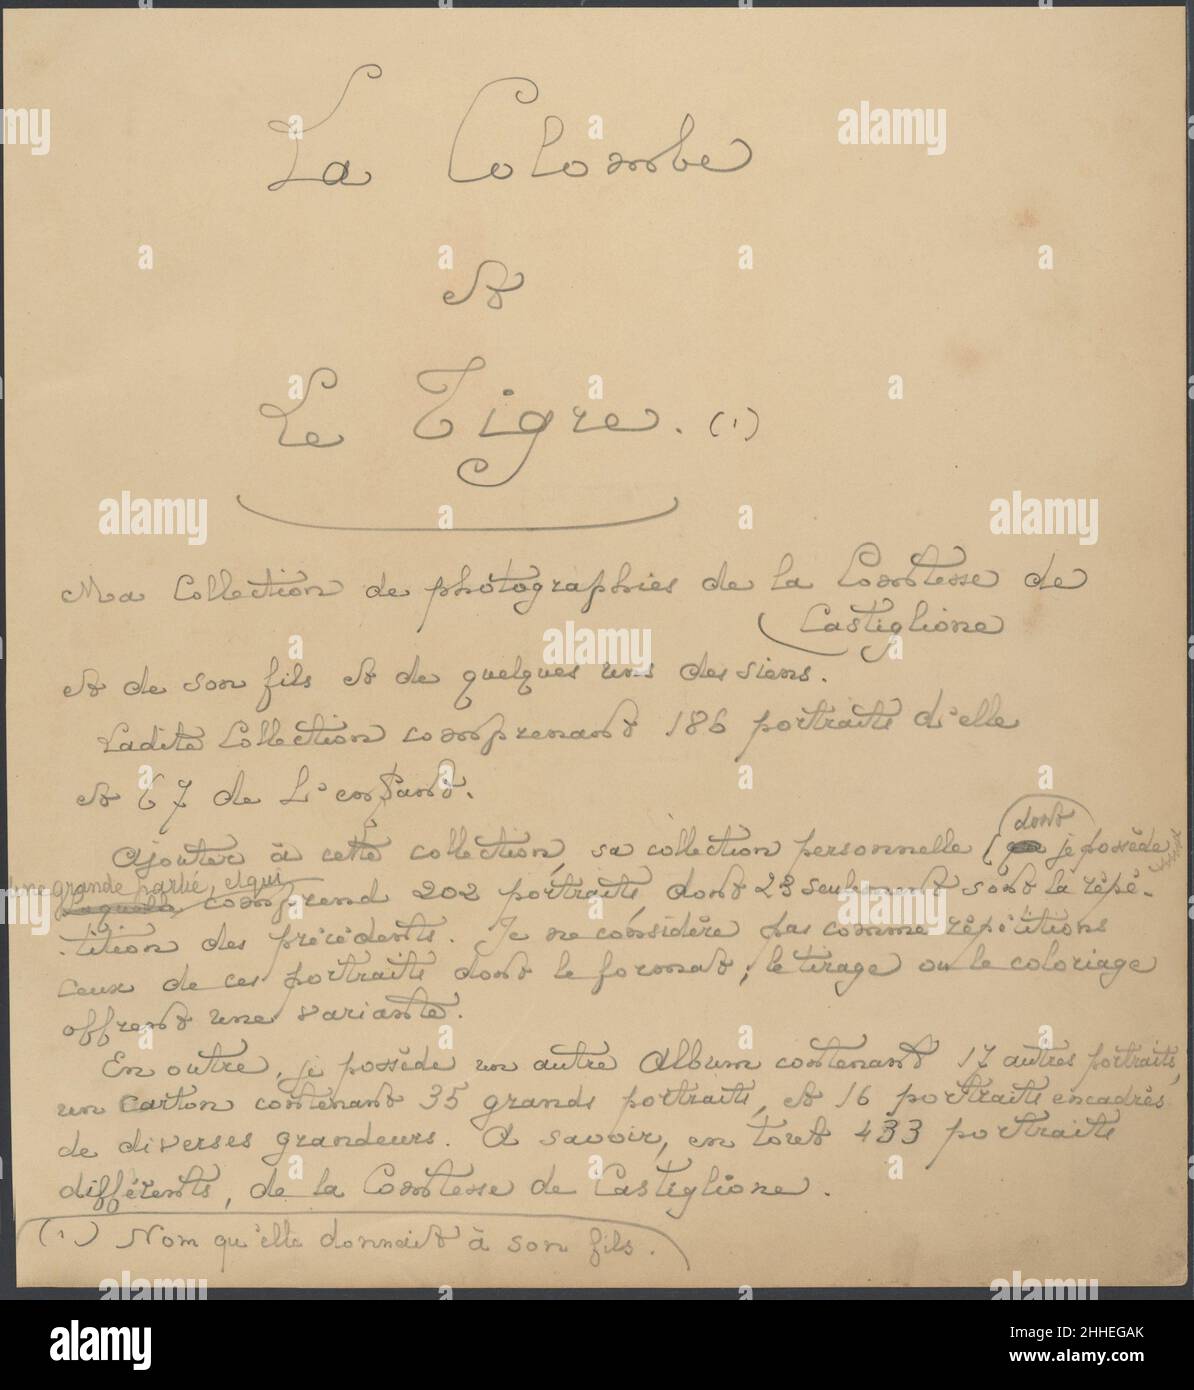 La Colombe
et
Le Tigre. (1)
Ma Collection de photographies de la Comtesse de
Castiglione
et de son fils et de quelques uns des siens.
Ladite Collection comprenant 186 portraits d'elle
et 67 de L'enfant.
Ajouter à cette collection, sa collection personnelle (dont je possède
une grande partie, et qui comprend 202 portraits, dont 23 seulement sont la répé-
-tition des précédents. Je ne considère pas comme répétitions
ceux de ces portraits dont le format, le tirage ou le coloriage
offrent une variante.
En outre, je possède un autre Album contenant 17 autres portraits,
un carton contenant 35 grands portraits, et 16 portraits encadrés
de diverses grandeurs. A savoir, en tout 433 portraits
différents, de la Comtesse de Castiglione.
(1) Nom qu'elle donnait à son fils.
alamy
Image ID: 2HHEGAK
www.alamy.com